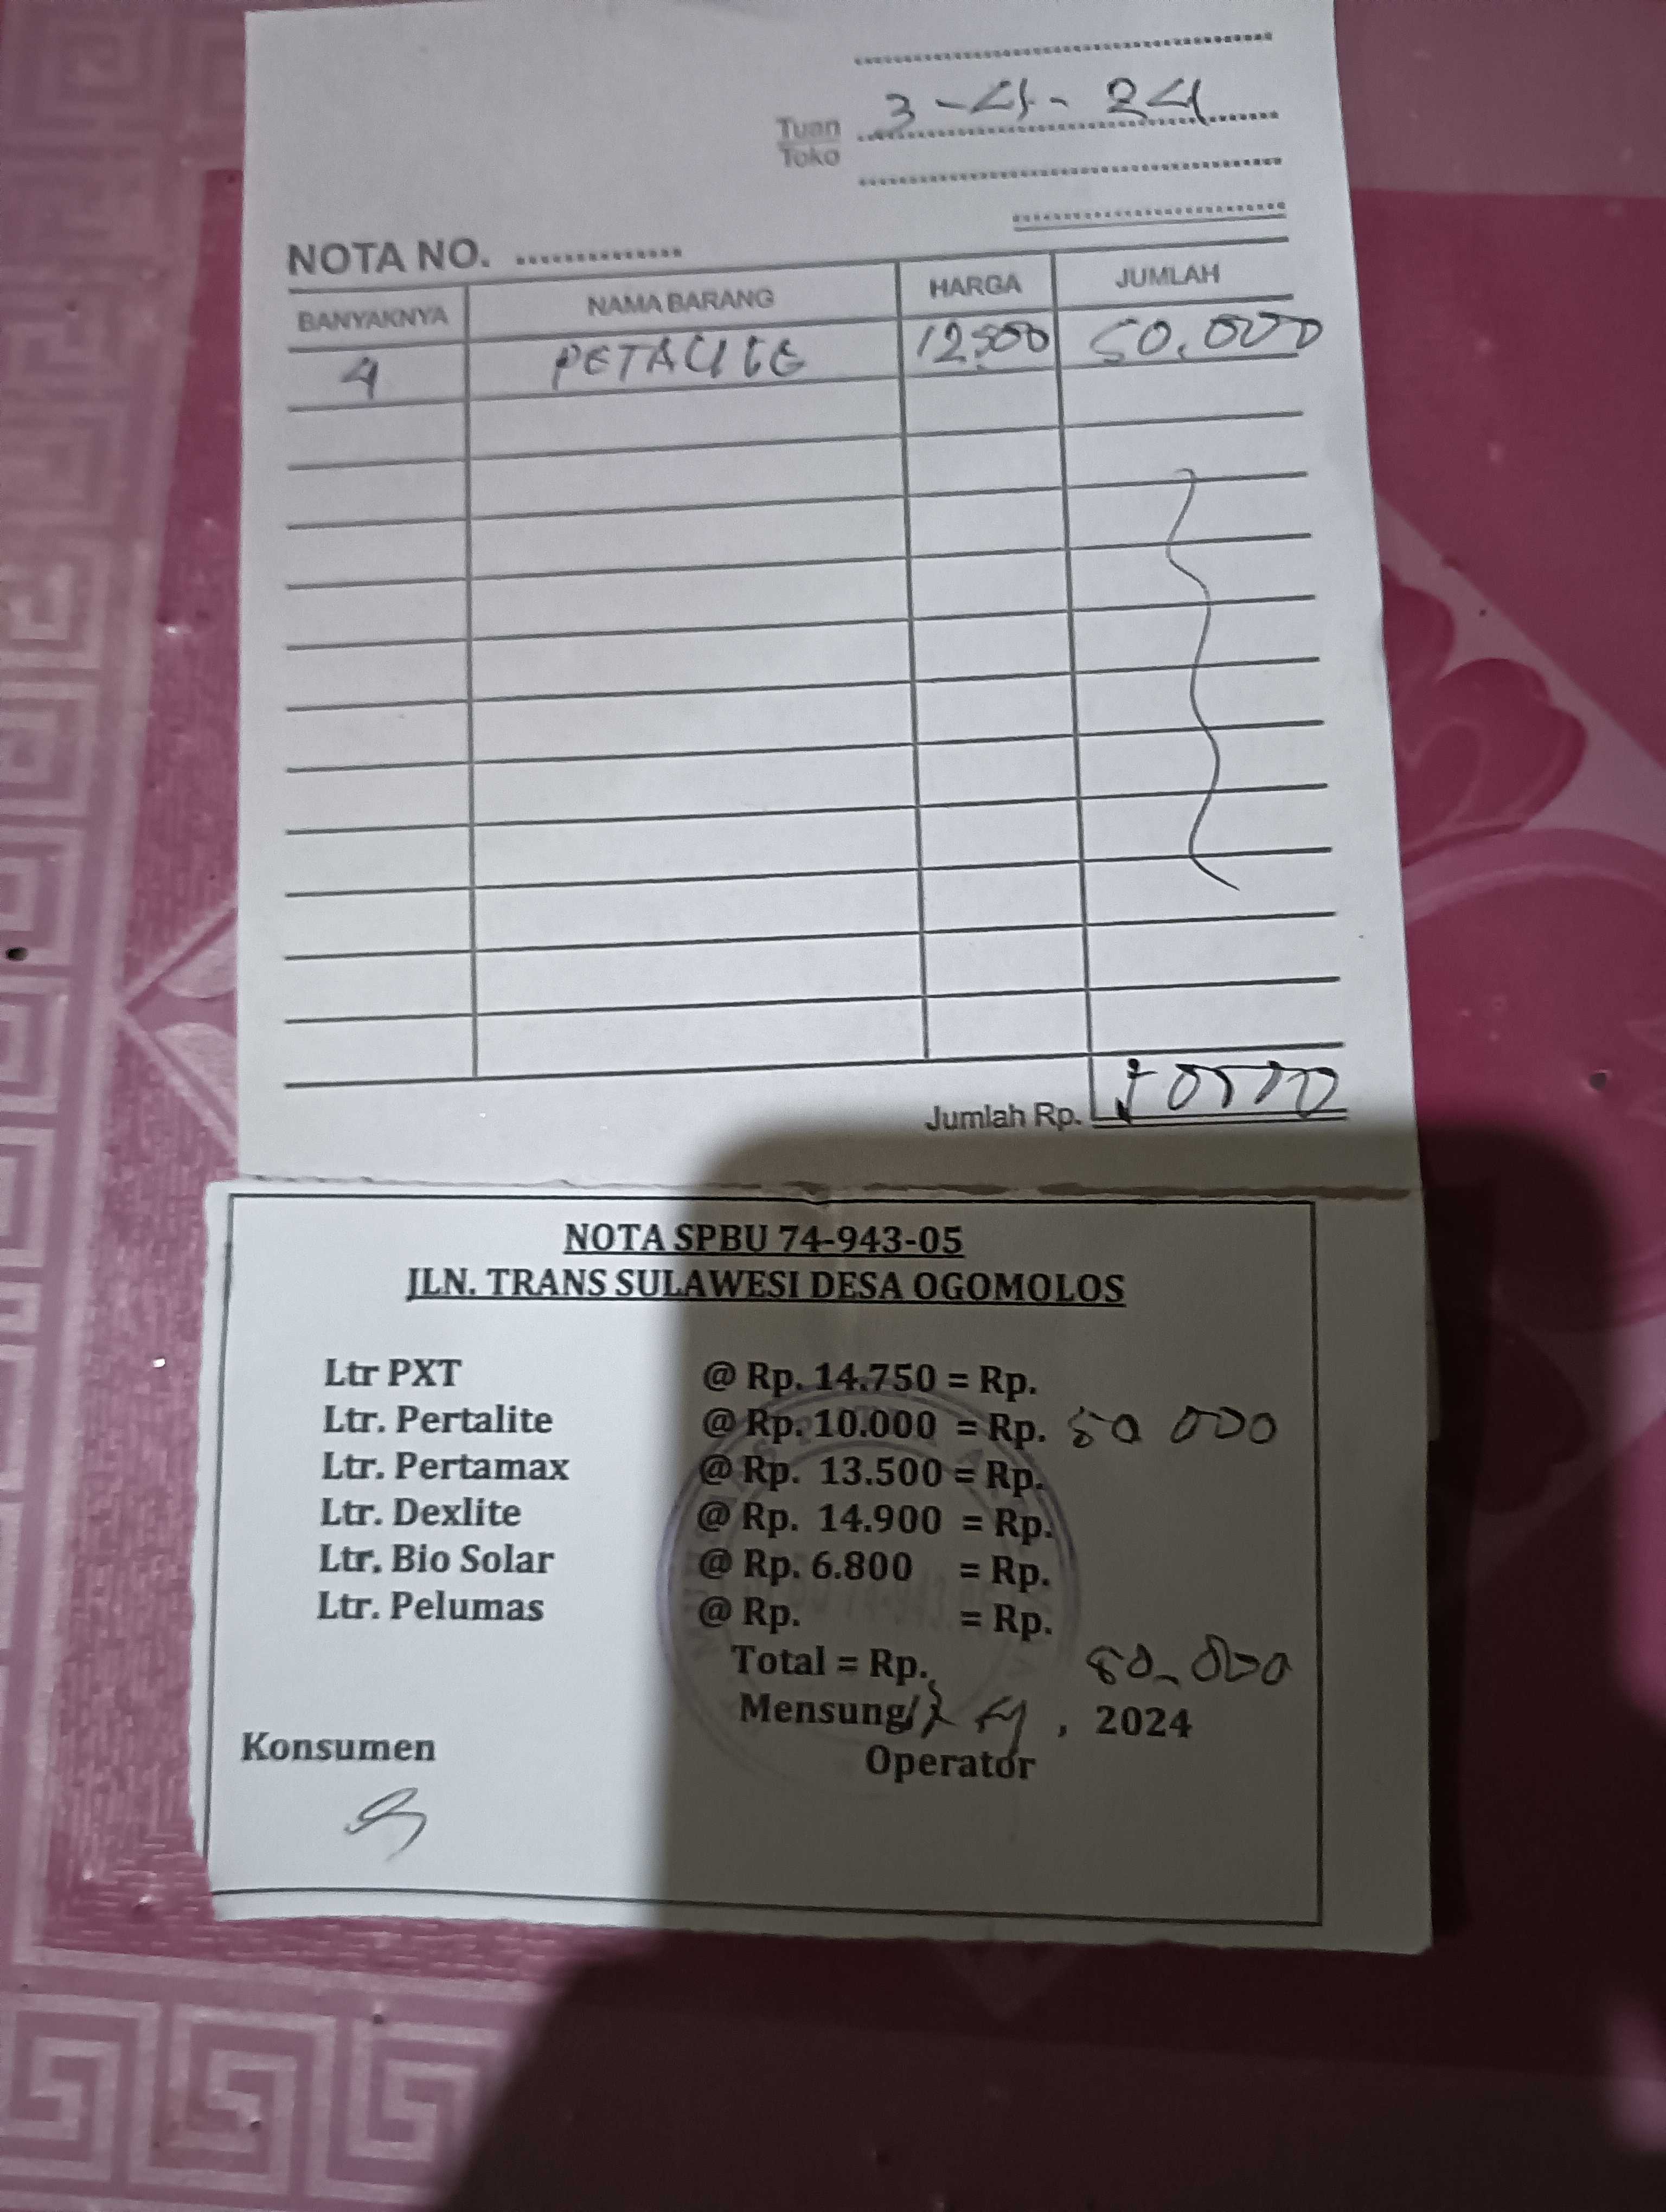 3-4-24
Tuan
Toko
NOTA NO. ...............
BANYAKNYA NAMA BARANG HARGA JUMLAH
4 PETALITE 12.500 50.000
Jumlah Rp. 50000
NOTA SPBU 74-943-05
JLN. TRANS SULAWESI DESA OGOMOLOS
Ltr PXT @ Rp. 14.750 = Rp.
Ltr. Pertalite @ Rp. 10.000 = Rp. 50 000
Ltr. Pertamax @ Rp. 13.500 = Rp.
Ltr. Dexlite @ Rp. 14.900 = Rp.
Ltr. Bio Solar @ Rp. 6.800 = Rp.
Ltr. Pelumas @ Rp. = Rp.
Total = Rp. 50.000
Mensung, 4, 2024
Konsumen Operator